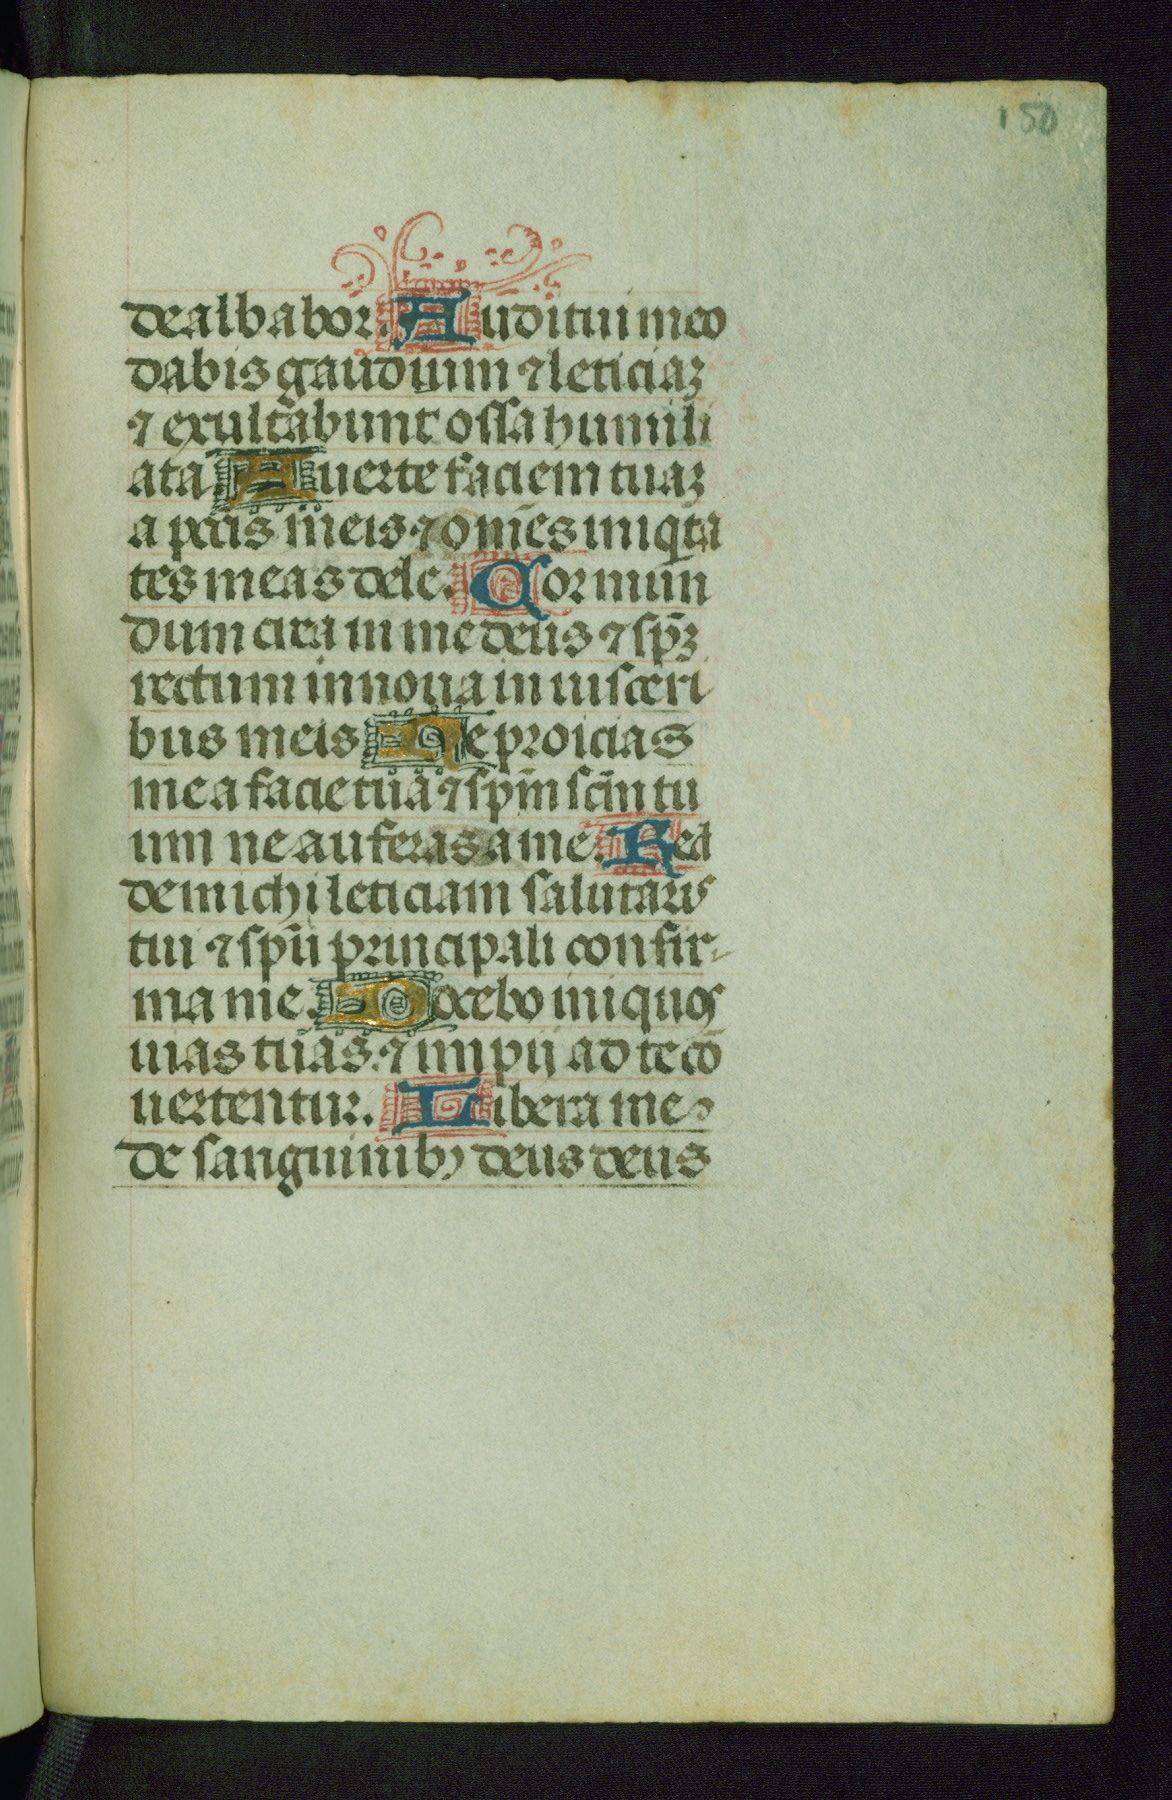 150
dealbabor. Auditui meo
dabis gaudium ⁊ leticiaꝫ
⁊ exultabunt ossa humili
ata. Auerte faciem tuaꝫ
a pctis meis ⁊ om̄es iniqta
tes meas dele. Cor mun
dum crea in me deus ⁊ sp̄ꝫ
rectum innoua in uisceri
bus meis Ne proicias
me a facie tua ⁊ spm̄ scm̄ tu
um ne auferas a me. Red
de michi leticiam salutaris
tui ⁊ spū principali confir-
ma me. Docebo iniquos
uias tuas. ⁊ impij ad te cō
uertentur. Libera me
de sanguinibꝫ deus deus